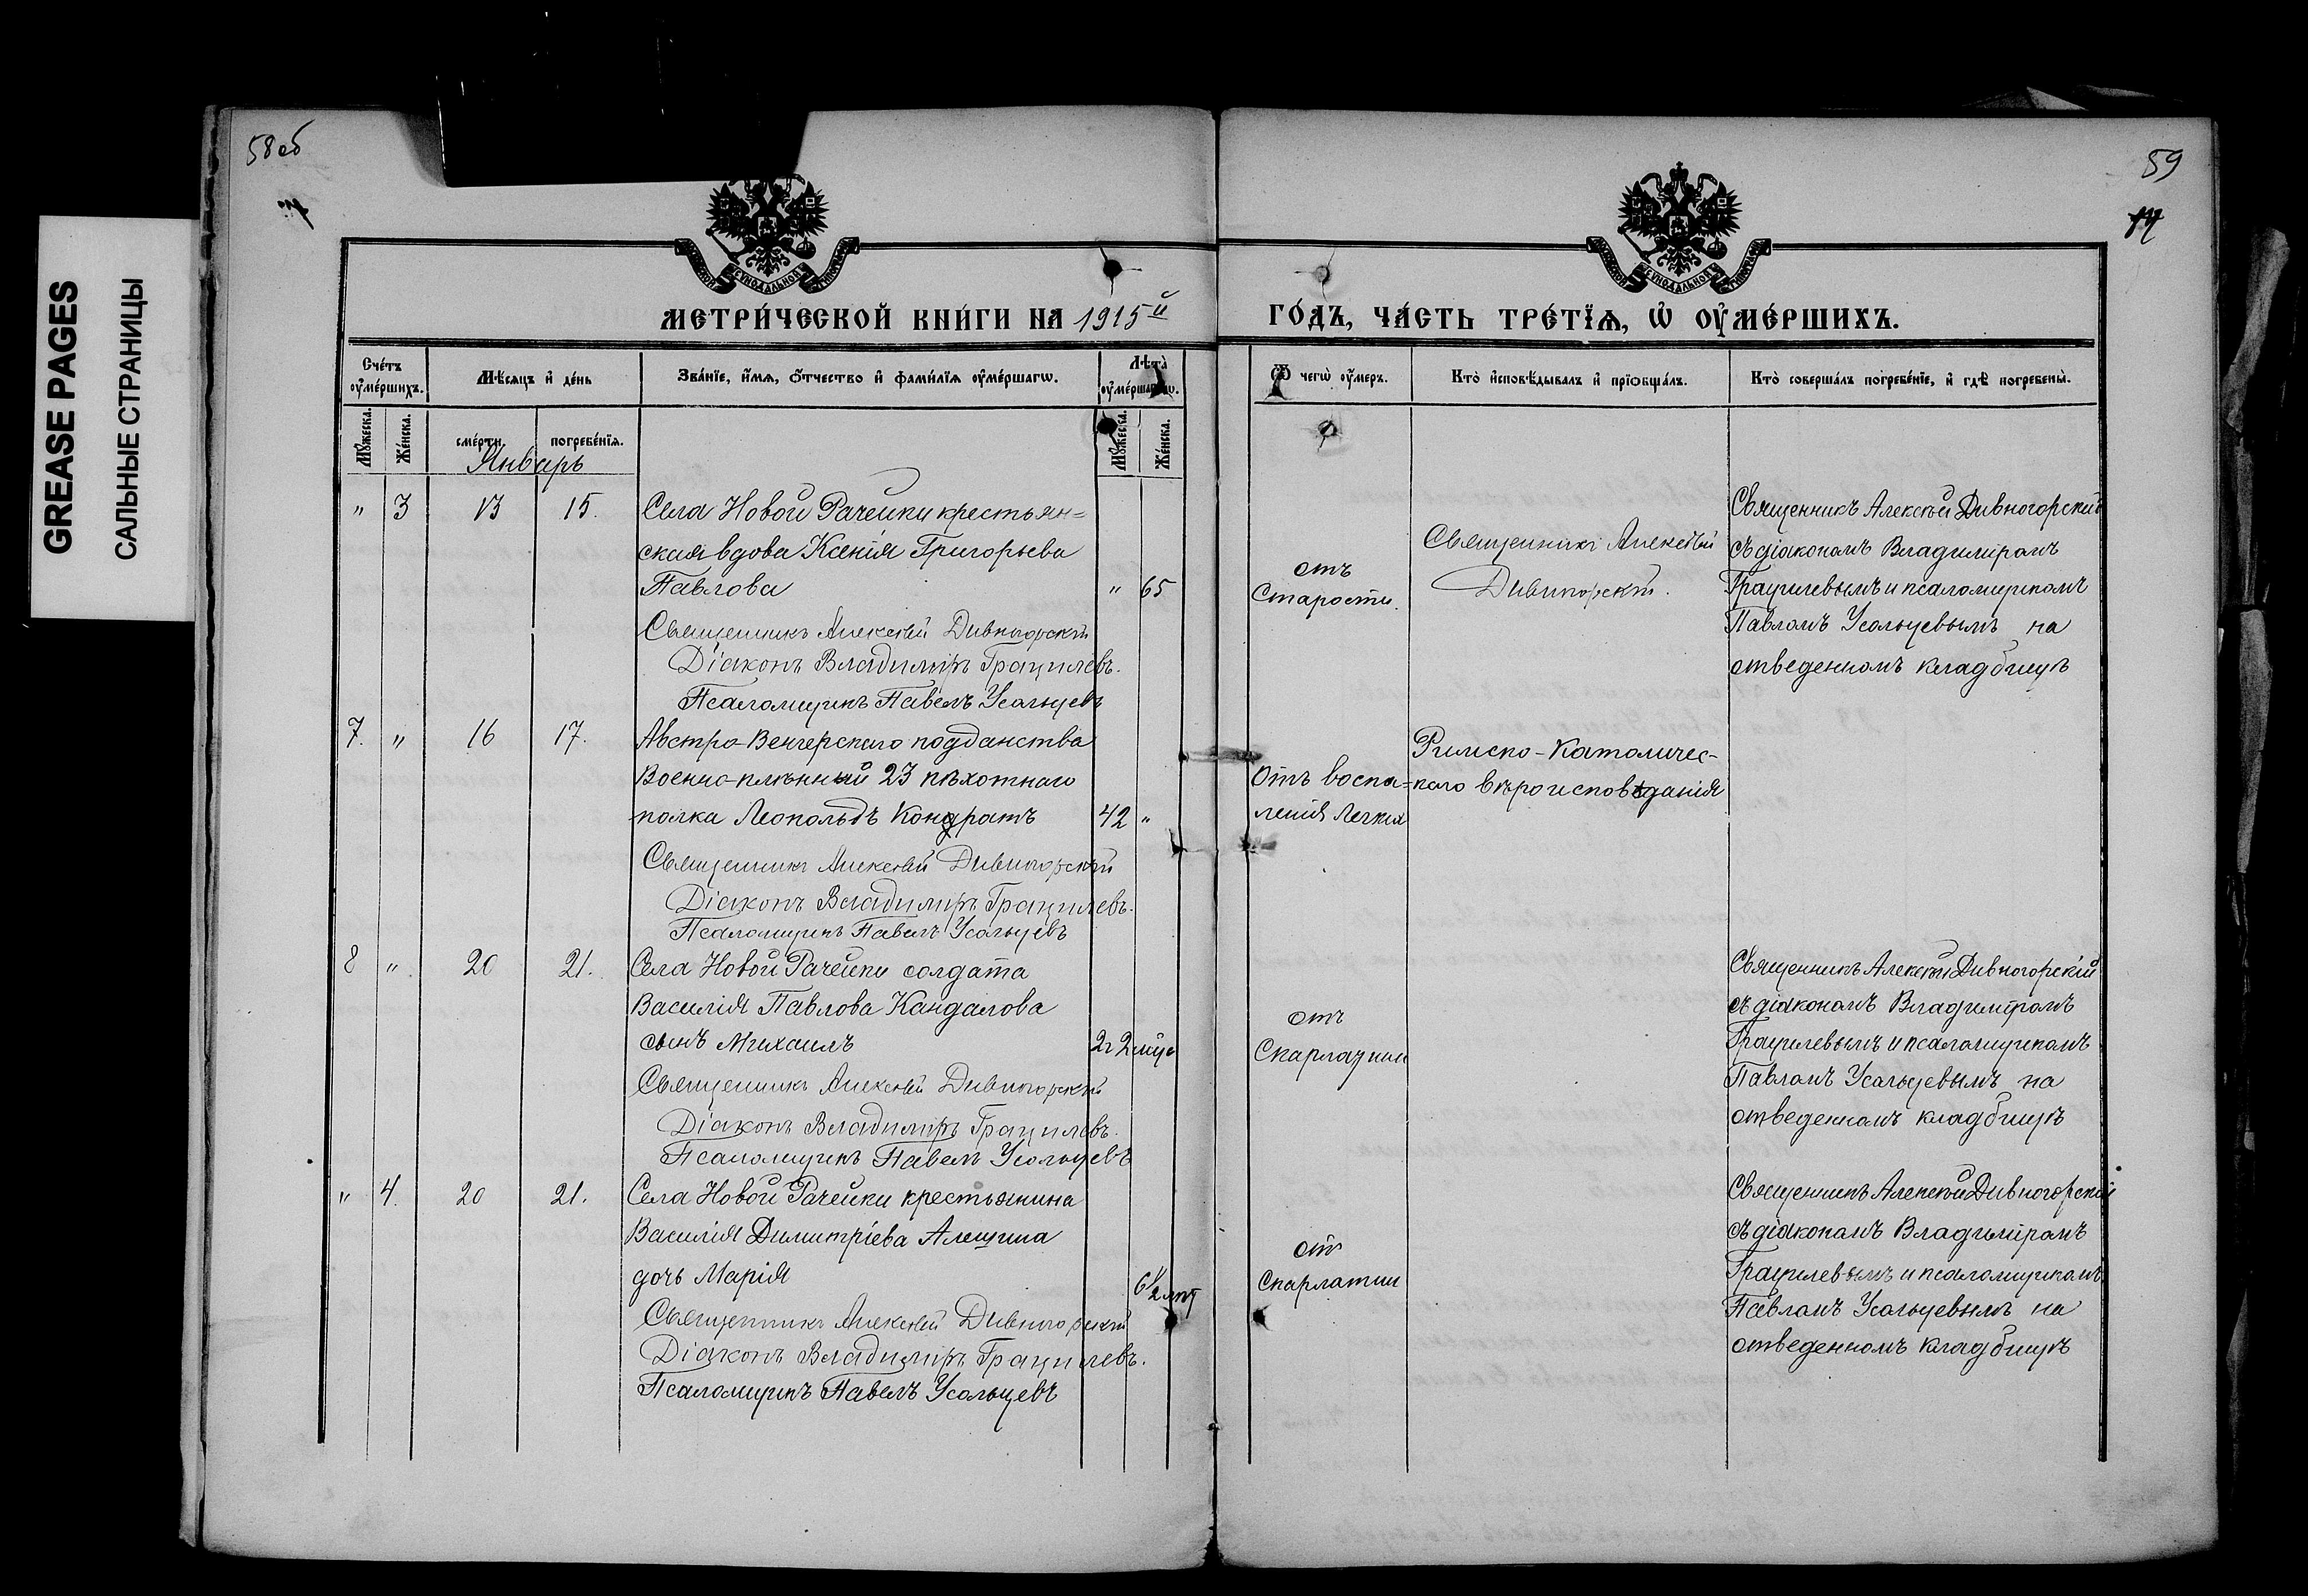 GREASE PAGES
САЛЬНЫЕ СТРАНИЦЫ
58об
59
МЕТРИ́ЧЕСКОЙ КНИ́ГИ НА 1915й
ГО́ДЪ, ЧА́СТЬ ТРЕ́ТЇѦ, Ѡ҆ ОУ҆МЕ́РШИХЪ.
Сче́тъ оу҆ме́ршихъ.
Мѣ́сяцъ и҆ де́нь
Зва́нїе, и҆́мѧ, ѻ҆́тчество и҆ фами́лїѧ оу҆ме́ршагѡ.
Лѣта̀ оу҆ме́ршагѡ.
Ѿ чегѡ̀ оу҆́меръ.
Кто̀ и҆сповѣ́дывалъ и҆ прїѡбща́лъ.
Кто̀ соверша́лъ погребе́нїе, и҆ гдѣ̀ погребены̀.
Мꙋ́жеска.
Же́нска.
сме́рти.
погребе́нїѧ.
Мꙋ́жеска.
Же́нска.
Январь
" 3 13 15.
Села Новой Рачейки крестьян=
ская вдова Ксенія Григорьева
Павлова " 65
Священникъ Алексѣй Дивногорскій
Діаконъ Владиміръ Грацилевъ.
Псаломщикъ Павелъ Усольцевъ
отъ
Старости.
Священникъ Алексѣй
Дивногорскій.
Священникъ Алексѣй Дивногорскій
съ діакономъ Владиміромъ
Грацилевымъ и псаломщикомъ
Павломъ Усольцевымъ на
отведенномъ кладбищѣ
7. " 16 17.
Австро-Венгерскаго подданства
Военно-плѣнный 23 пѣхотнаго
полка Леопольдъ Кондратъ 42 "
Священникъ Алексѣй Дивногорскій
Діаконъ Владиміръ Грацилевъ.
Псаломщикъ Павелъ Усольцевъ
Отъ воспа=
ленія легкихъ
Римско-Католичес-
каго вѣроисповѣданія
8 " 20 21.
Села Новой Рачейки солдата
Василія Павлова Кандалова
сынъ Михаилъ 2г 2 мѣс
Священникъ Алексѣй Дивногорскій
Діаконъ Владиміръ Грацилевъ.
Псаломщикъ Павелъ Усольцевъ
отъ
Скарлатины
Священникъ Алексѣй Дивногорскій
съ діакономъ Владиміромъ
Грацилевымъ и псаломщикомъ
Павломъ Усольцевымъ на
отведенномъ кладбищѣ
" 4. 20 21.
Села Новой Рачейки крестьянина
Василія Димитріева Алешина
дочь Марія 6 1/2 лѣт
Священникъ Алексѣй Дивногорскій
Діаконъ Владиміръ Грацилевъ.
Псаломщикъ Павелъ Усольцевъ
отъ
Скарлатин
Священникъ Алексѣй Дивногорскій
съ діакономъ Владиміромъ
Грацилевымъ и псаломщикомъ
Павломъ Усольцевымъ на
отведенномъ кладбищѣ